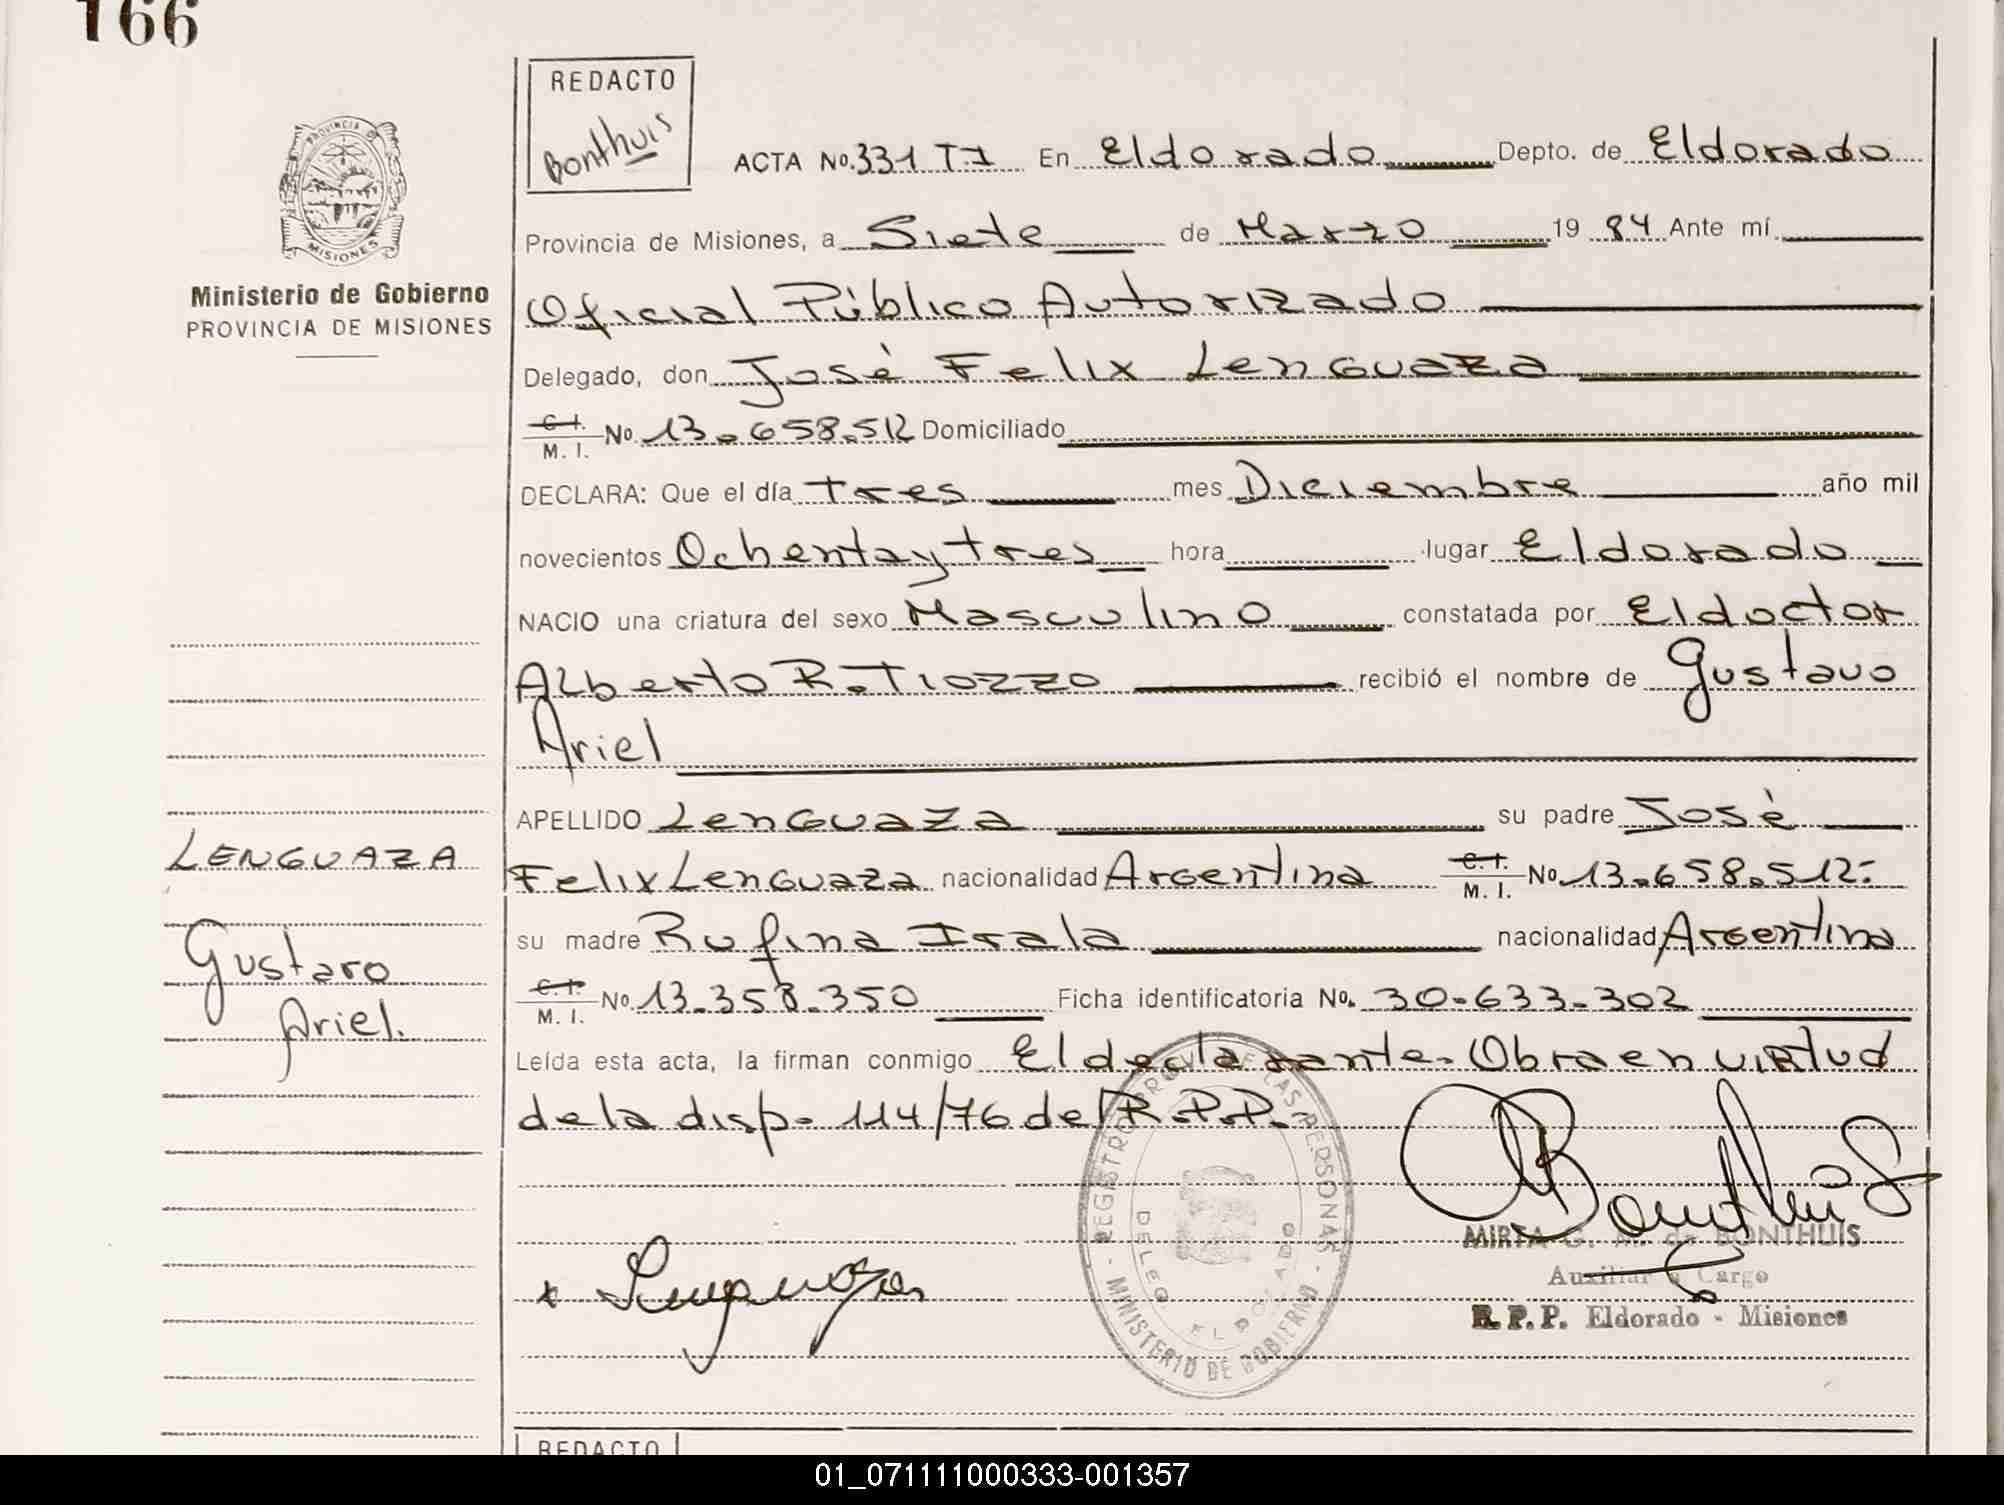 166
REDACTO
Bonthuis
PROVINCIA DE MISIONES
Ministerio de Gobierno
PROVINCIA DE MISIONES
ACTA No. 331 TI En Eldorado Depto. de Eldorado
Provincia de Misiones, a Siete de Marzo 19 84 Ante mí
Oficial Público Autorizado
Delegado, don José Felix Lenguaza
C.I. M. I. No. 13.658.512 Domiciliado
DECLARA: Que el día tres mes Diciembre año mil
novecientos Ochentaytres hora lugar Eldorado
NACIO una criatura del sexo Masculino constatada por El doctor
Alberto R. Tiozzo recibió el nombre de Gustavo
Ariel
APELLIDO Lenguaza su padre José
Felix Lenguaza nacionalidad Argentina C.I. M. I. No. 13.658.512-
su madre Rufina Irala nacionalidad Argentina
C.I. M. I. No. 13.358.350 Ficha identificatoria No. 30-633-302
Leída esta acta, la firman conmigo El declarante. Obra en virtud
de la disp. 114/76 del R.P.P.-
LENGUAZA
Gustavo
Ariel.
REGISTRO PROV. DE LAS PERSONAS - MINISTERIO DE GOBIERNO -
DELEG. ELDORADO
Lenguaza
Bonthuis
MIRTA G. M. de BONTHUIS
Auxiliar a Cargo
R.P.P. Eldorado - Misiones
REDACTO
01_071111000333-001357